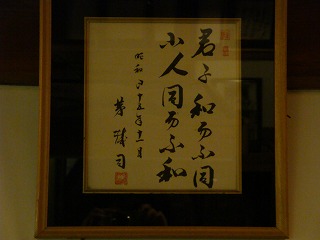 君子和而不同
小人同而不和
昭和
茅誠司